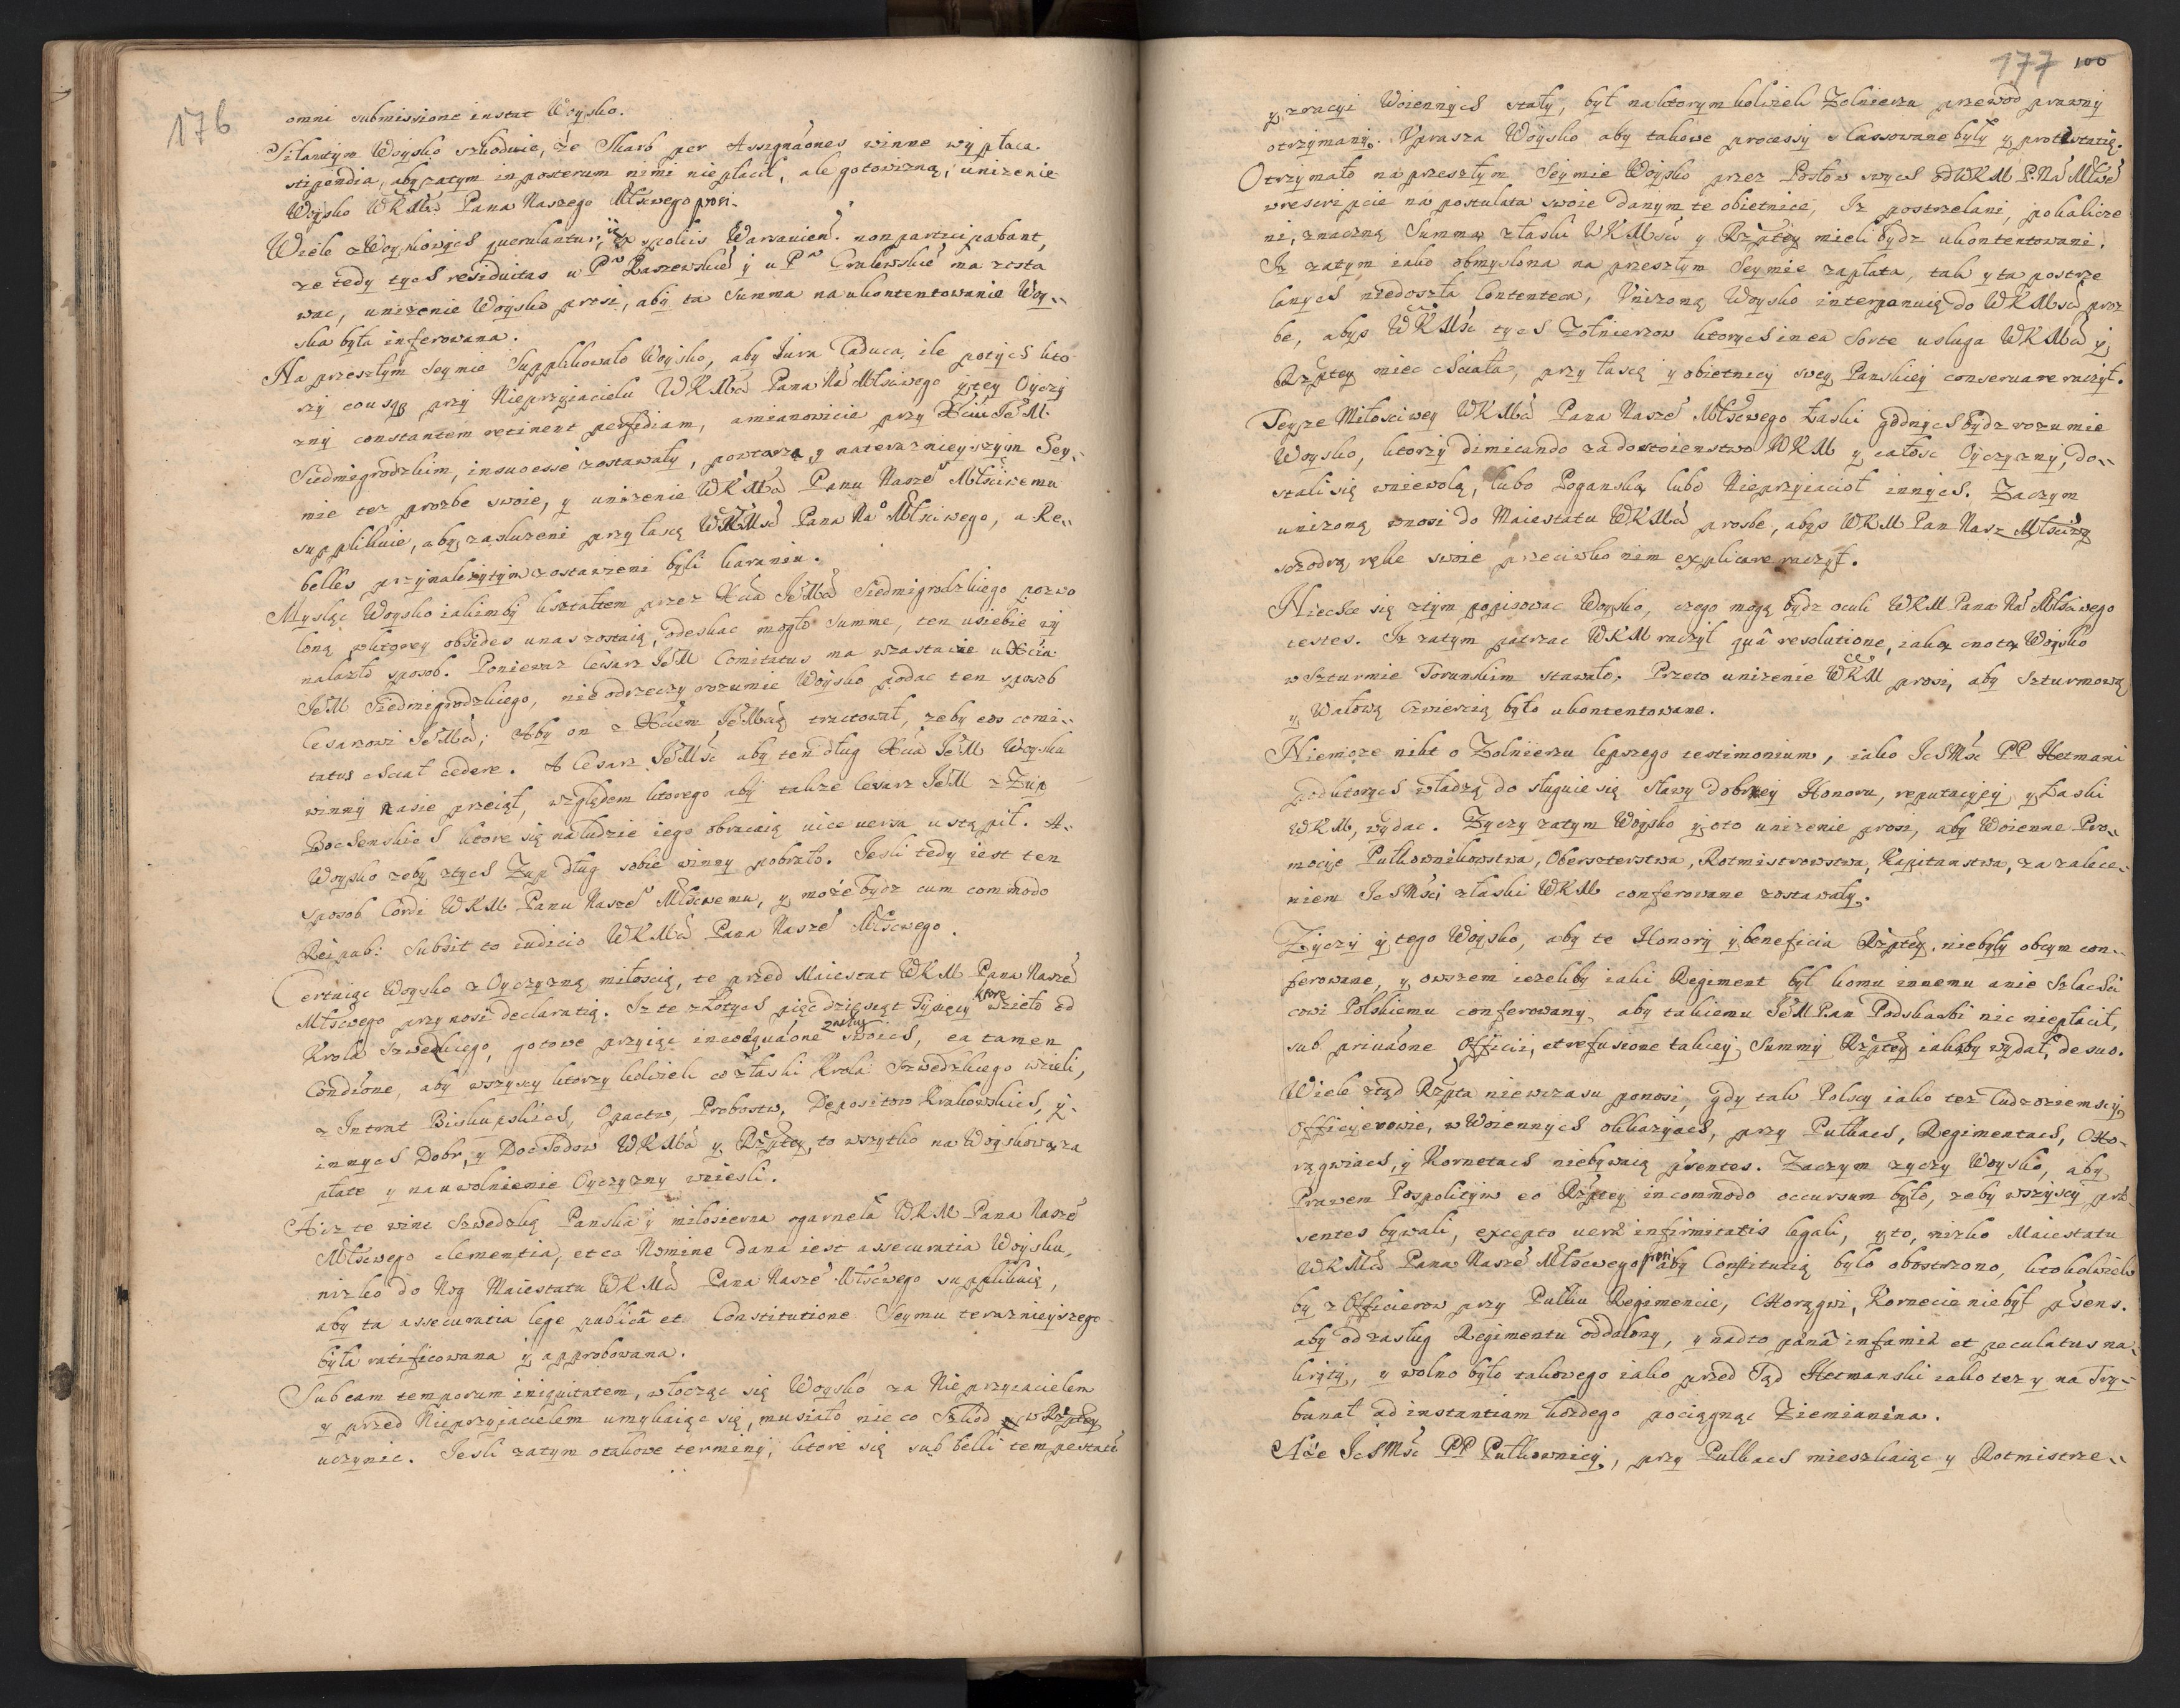 176
omni submissione instat Woysko.
Iż lantym Woysko szkoduie, że Skarb per Assignãones winne wypłaca
stipendia, aby zatym in posterum nimi niepłacił, ale gotowizną, unizenie
Woysko WKMci Pana Naszego Młścwego prosi.
Wiele z Woyskowych querulantur, iż ex spoliis Warsavien: non participabant,
ze tedy tych residuitas u Pa Raszewskie y u Pa Gralewskie ma zosta
wac, unizenie Woysko prosi, aby ta Summa na ukontentowanie Woy-
ska była inferowana.
Na przeszłym Seymie Supplikowało Woysko, aby Iura Caduca, ile po tych kto
rzy cousqȝ przy Nieprzyiacielu WKMci Pana Na Młściwego y tey Oyczy
zny constantem retinent perfidiam, a mianowicie przy Xciu JeM
Siedmigrodzkim, in suo esse zostawały, powtarza y na terazniey­szym Sey-
mie też prozbe swoie, y unizenie WKMci Panu Nasze Młściwemu
supplikuie, aby zasłuzeni przy łascę WKMsci Pana Na Młściwego, a Re-
belles przynależytym zostawieni byli karaniu.
Mysląc Woysko iakimby kształtem przez Xcia JeMci Siedmigrodzkiego pozwo
loną, w ktorey obsides u nas zostaią, odeskac mogło Summe, ten u siebie wy
nalazło sposob. Poniewaz Cesarz JeM Comitatus ma w zastawie u Xcia
JeM Siedmigrodzkiego, nie odrzeczy rozumie Woysko podac ten sposob
Cesarzowi JeMci; Aby on z Xciem JeMcią tractował, zeby eos comi-
tatus chciał cedere. A Cesarz JeMsc aby ten dług Xcia JeM Woysku
winny na sie przeiął, względem ktorego aby także Cesarz JeM z Zup
Bochenskich ktore się na ludzie iego obracaią vice versa ustąpił. A-
Woysko zeby z tych Zup dług sobie winny pobrało. Jesli tedy iest ten
sposob Cordi WKM Panu Nasze Młścwemu, y może bydz cum commodo
Reipub: Subsit to iudicio WKMci Pana Nasze Młścwego.
Certuiąc Woysko z Oyczyzną miłoscią, te przed Maiestat WKM Pana Nasze
Młścwego przynosi declaratią. Iz te złotych pięcdziesiąt Tysięcy ktore wzieło od
Krola Szwedzkiego, gotowe przyiąc in coæquãone zasług swoich, ea tamen
Condicõne, aby wszyscy ktorzy kolwiek co złaski Krola Szwedzkiego wzieli,
z Intrat Biskupskich, Opactw, Probostw, Depositow Krakowskich, y
innych Dobr, y Dochodow WKMci y Rzptey, to wszytko na Woyskową za
płate y na uwolnienie Oyczyzny wniesli.
A iz te winc Szwedzką Panska y miłosierna ogarneła WKM Pana Nasze
Młścwego clementia, et eo Nomine dana iest assecuratia Woysku,
nizko do Nog Maiestatu WKMci Pana Nasze Młścwego supplikuią,
aby ta assecuratia lege publicâ et Constitutione Seymu terazniey­szego
była ratificowana y approbowana.
Sub eam temporum iniquitatem, włocząc się Woysko za Nieprzyiacielem
y przed Nieprzyiacielem umykaiąc się, musiało nieco Szkod w Rzptey
uczynic. Jesli zatym o takowe terminy, ktore się sub belli tempestate
177 100
y z racyi Woiennych stały, był na ktorymkolwiek Zolnierzu przewod prawny
otrzymany. Uprasza Woysko aby takowe processy classowane były y protestatię.
Otrzymało na przeszłym Seymie Woysko przez Posłow swych od WKM P. Na Młwe
w rescripcie na postulata swoie danym te obietnice, Iz postrzelani, pokalicze
ni, znaczną Summą złaski WKMsci y Rzptey mieli bydz ukontentowani.
Iz zatym iako obmyslona na przeszłym Seymie zapłata, tak y ta postrze
lanych niedoszła Contenteca, Unizoną Woysko interponuią do WKMsci proz
be, abys WKMsc tych Zołnierzow ktorych in ea Sorte usługa WKMci y
Rzptey miec chciała, przy łascę y obietnicy swey Panskiey conservare raczył.
Teyze Miłosciwey WKMci Pana Nasze Młścwego Łaski godnych bydz rozumie
Woysko, ktorzy dimicando za dostoienstwo WKM y całosc Oyczyzny, do-
stali się w niewolą, lubo Poganską lubo Nieprzyiacioł innych. Zaczym
unizoną wnosi do Maiestatu WKMci prosbe, abys WKM Pan Nasz Młsciwy
szczodrą ręke swoie przeciwko nim explicare raczył.
Niechce się z tym popisowac Woysko, czego mogą bydz oculi WKM Pana Na Młściwego
testes. Iz zatym patrzac WKM raczył quâ resolutione, iaką cnotą Woysko
w Szturmie Torunskim stawało, Przeto unizenie WKM prosi, aby Szturmową
y Wałową cwiercią było ukontentowane.
Niemoze nikt o Zolnierzu lepszego testimonium, iako IchMsc PP Hetmani
pod ktorych władzą do sługuie się sławy dobrey Honoru, reputacyey y Łaski
WKM, wydac. Zyczy zatym Woysko y oto unizenie prosi, aby Woienne Pro-
mocye Pułkownikowstwa, Obersterstwa, Rotmistrowstwa, Kapitanstwa, za zalece-
niem IchMści złaski WKM conferowane zostawały.
Zyczy y tego Woysko, aby te Honory y beneficia Rzptey, niebyły obcym con-
ferowane, y owszem iezeliby iaki Regiment był komu innemu anie Szlachci
cowi Polskiemu conferowany, aby takiemu JeMPan Podskarbi nic niepłacił,
sub privãone Officii, et refusione takiey Summy Rzptey iakąby wydał, de suo.
Wiele ztąd Rzpta niewczasu ponosi, gdy tak Polscy iako też Cudzoziemscy
Officyerowie, w Woiennych okkazyach, przy Pułkach, Regimentach, Cho-
rągwiach, y Kornetach niebywaią pñsentes. Zaczym zyczy Woysko, aby
Prawem Pospolitym eo Rzptey incommodo occursum było, zeby wszyscy prę-
sentes bywali, excepto verâ infirmitatis legali, y to, nizko Maiestatu
WKMci Pana Nasze Młścwego prosi aby Constitutią było obostrzono, ktokolwiek
by z Officierow przy Pułku Regimencie, Chorągwi, Kornecie niebył pñsens.
aby od zasług Regimentu oddalony, y nadto pænâ infamiæ et peculatus na-
kryty, y wolno było takowego iako przed Sąd Hetmanski iako też y na Try-
bunał ad instantiam kozdego pociągnąc Ziemianina.
Aże IchMsc PP Pułkownicy, przy Pułkach mieszkaiąc y Rotmistrze-